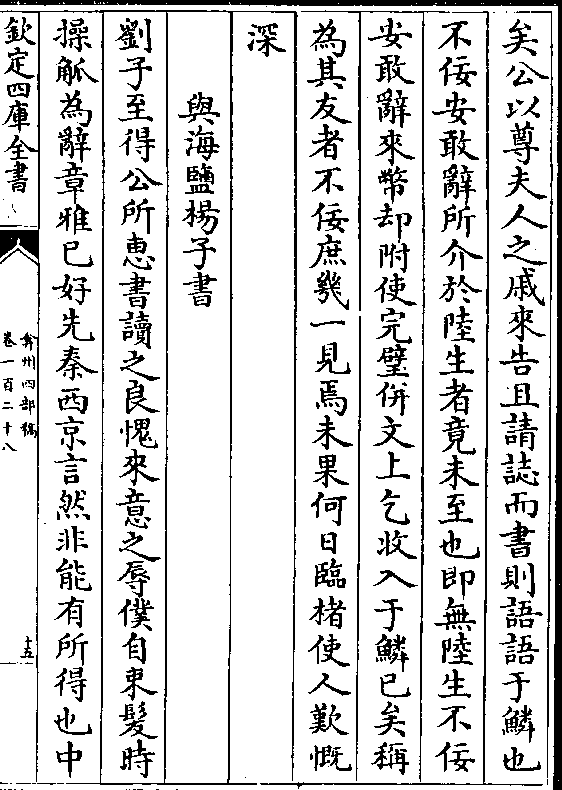 矣公以尊夫人之戚來告且請誌而書則語語于鱗也
不佞安敢辭所介於陸生者竟未至也即無陸生不佞
安敢辭來幣却附使完璧併文上乞收入于鱗已矣稱
為其友者不佞庶幾一見焉未果何日臨楮使人歎慨
深
與海鹽楊子書
劉子至得公所惠書讀之良愧來意之辱僕自束髮時
操觚為辭章雅已好先秦西京言然非能有所得也中
欽定四庫全書
弇州四部稿
卷一百二十八
十五